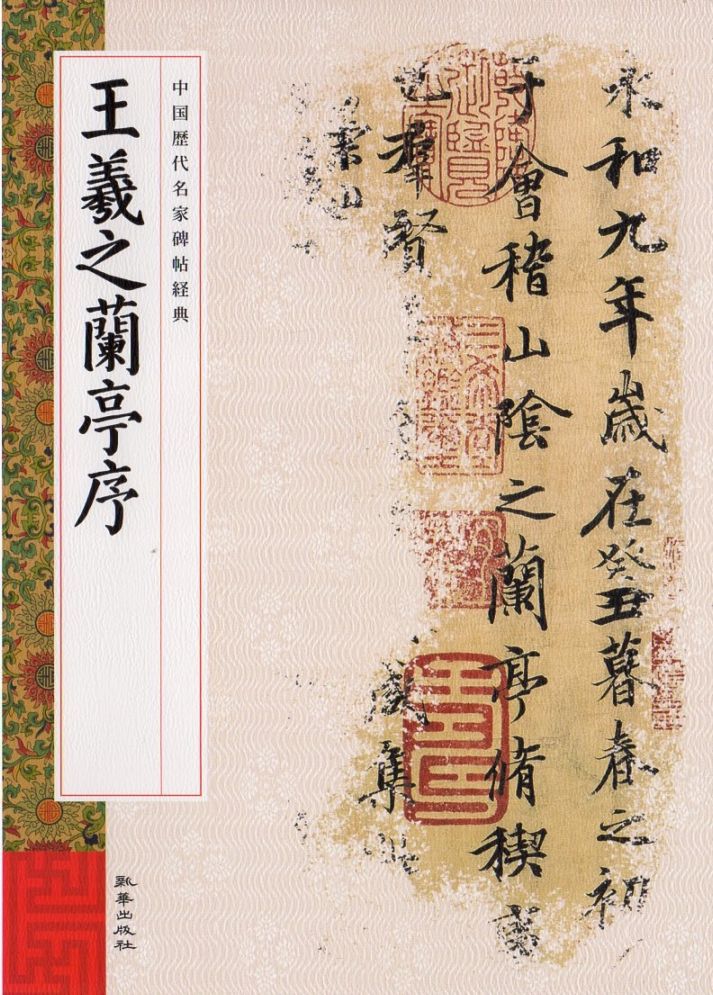 永和九年歲在癸丑暮春之初
于會稽山陰之蘭亭脩稧事
也羣賢
咸集
崇山
中国歴代名家碑帖経典
王羲之蘭亭序
新華出版社